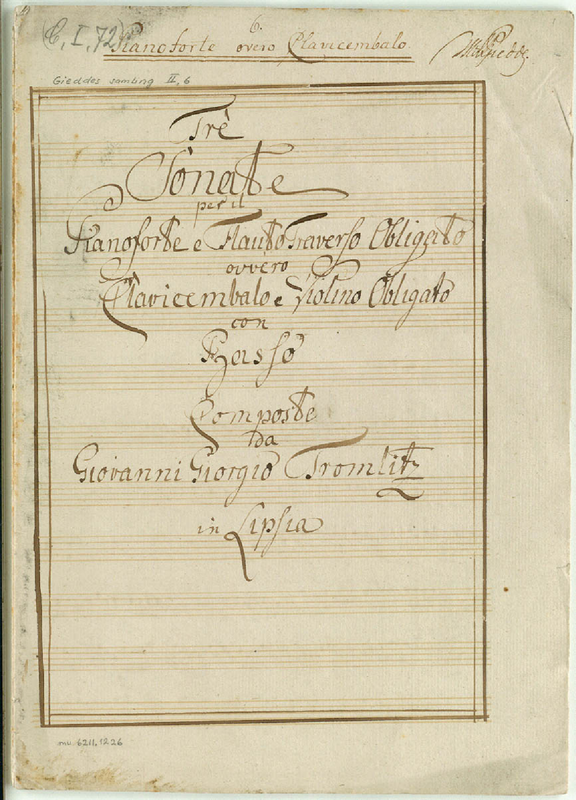 6.
C, I, 72
Pianoforte overo Clavicembalo.
Gieddes samling II, 6
Trè
Sonate
per il
Pianoforte e Flauto Traverso Obligato
ovvero
Clavicembalo e Violino Obligato
con
Basso
Composte
da
Giovanni Giorgio Tromlitz
in Lipsia
mu 6211.1226